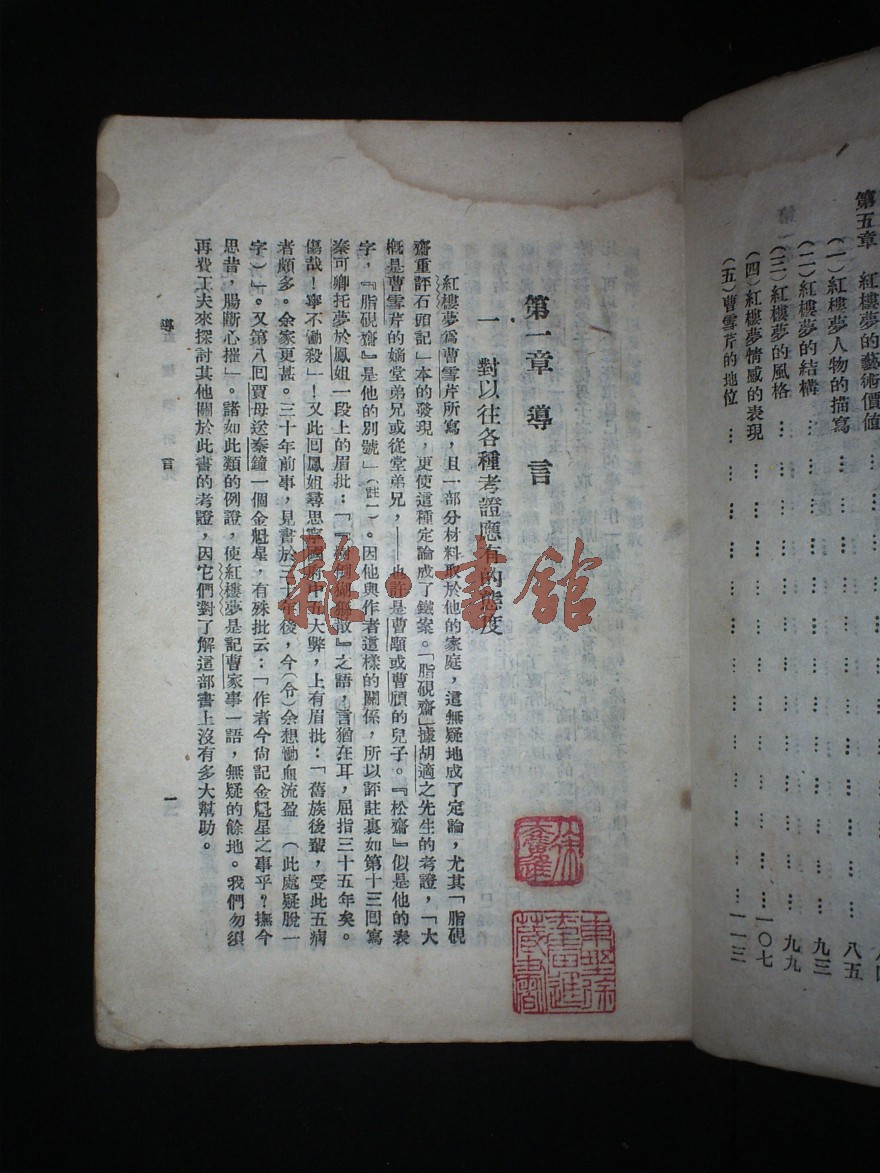 第五章　紅樓夢的藝術價值
（一）紅樓夢人物的描寫……八五
（二）紅樓夢的結構……九三
（三）紅樓夢的風格……九九
（四）紅樓夢情感的表現……一〇七
（五）曹雪芹的地位……一一三
第一章　導言
一　對以往各種考證應有的態度
紅樓夢爲曹雪芹所寫，且一部分材料取於他的家庭，這無疑地成了定論，尤其「脂硯
齋重評石頭記」本的發現，更使這種定論成了鐵案。「脂硯齋」據胡適之先生的考證，「大
概是曹雪芹的嫡堂弟兄或從堂弟兄，——也許是曹顒或曹頎的兒子。『松齋』似是他的表
字，『脂硯齋』是他的別號」（註一）。因他與作者這樣的關係，所以評註裏如第十三回寫
秦可卿托夢於鳳姐一段上的眉批：「『樹倒猢猻散』之語，言猶在耳，屈指三十五年矣。
傷哉！寧不慟殺」！又此回鳳姐尋思寧國府中五大弊，上有眉批：「舊族後輩，受此五病
者頗多。余家更甚。三十年前事，見書於三十年後，今（令）余想慟血流盈　（此處疑脫一
字）」。又第八回賈母送秦鐘一個金魁星，有殊批云：「作者今尙記金魁星之事乎？撫今
思昔，腸斷心摧」。諸如此類的例證，使紅樓夢是記曹家事一語，無疑的餘地。我們勿須
再費工夫來探討其他關於此書的考證，因它們對了解這部書上沒有多大幫助。
導言
一
雜·書館
徐
藏書